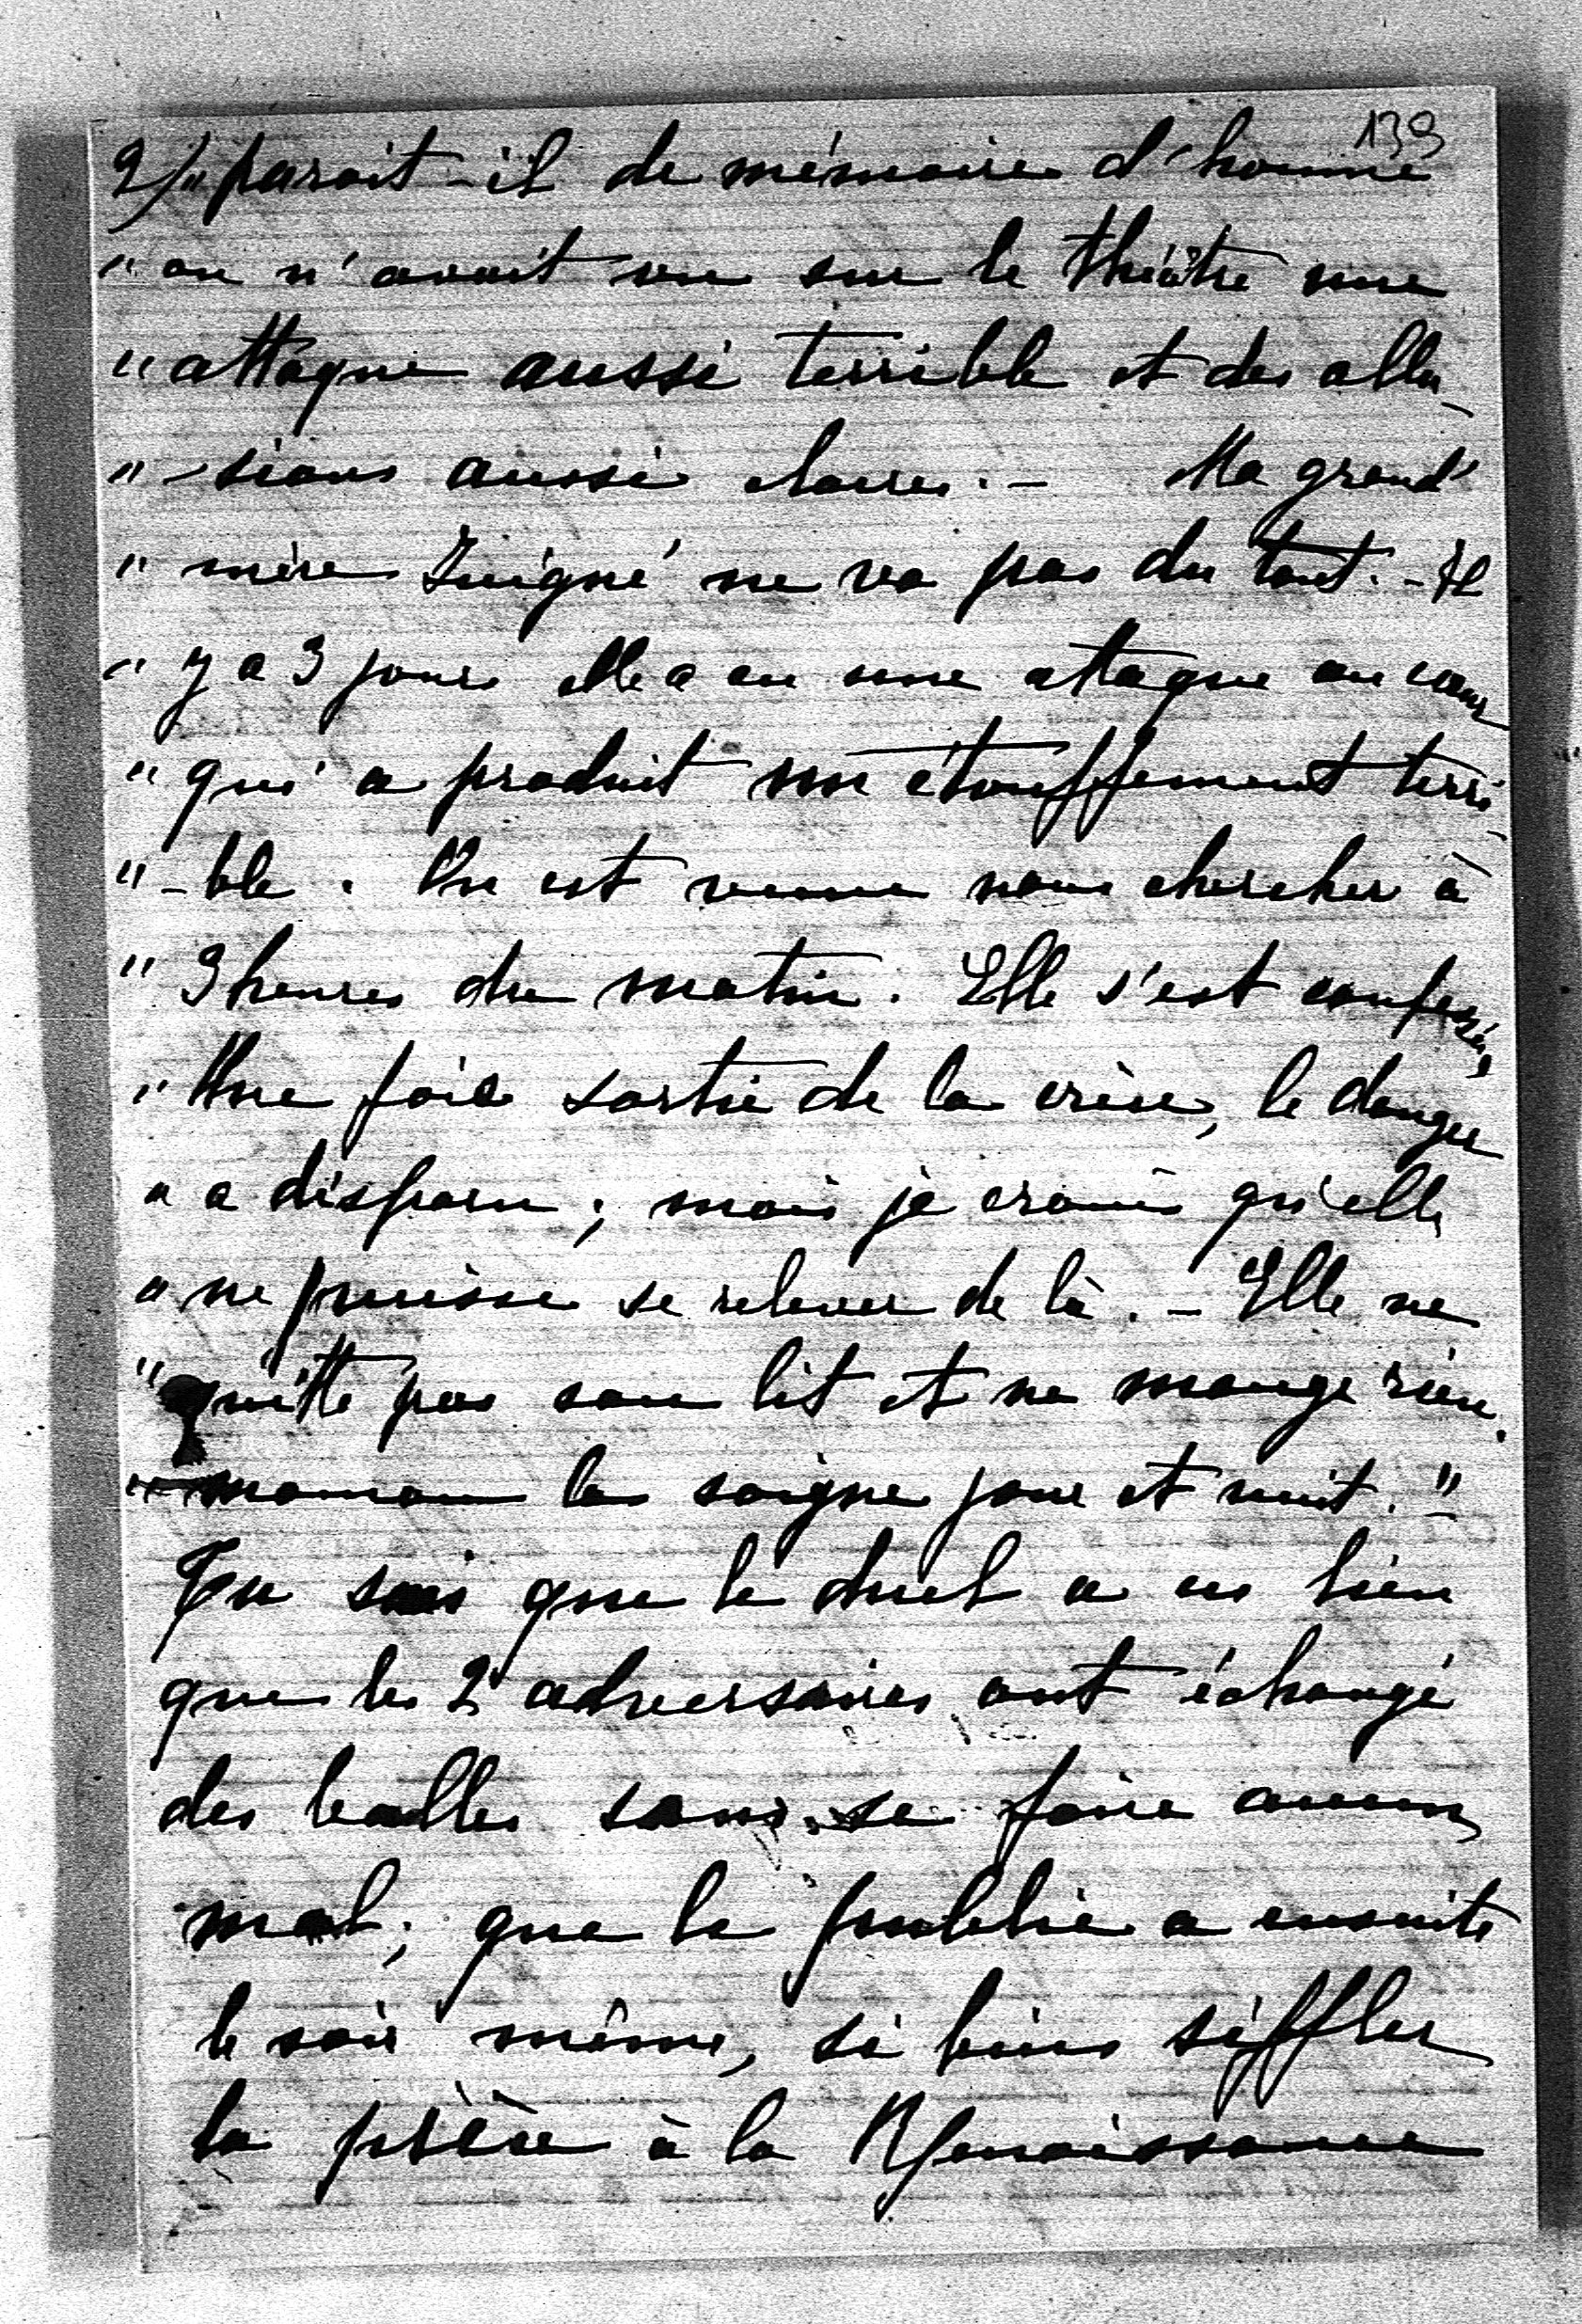 139
2/ " parait-il de mémoire d'homme
" on n'avait vu sur le théâtre une
" attaque aussi terrible et des allu-
" -sions aussi claires. - Ma grand'
" mère ne va pas du tout. - Il
" y a 3 jours elle a eu une attaque au cœur
" qui a produit un étouffement terri-
" -ble. On est venu nous chercher à
" 3 heures du matin. Elle s'est confessée
" Une fois sortie de la crise, le danger
" a disparu ; mais je crains qu'elle
" ne puisse se relever de là. - Elle ne
" quitte pas son lit et ne mange rien.
" maman la soigne jour et nuit. "
Tu sais que le duel a eu lieu
que les 2 adversaires ont échangé
des balles sans se faire aucun
mal ; que le public a ensuite
le soir même, si bien siffler
la pièce à la Renaissance